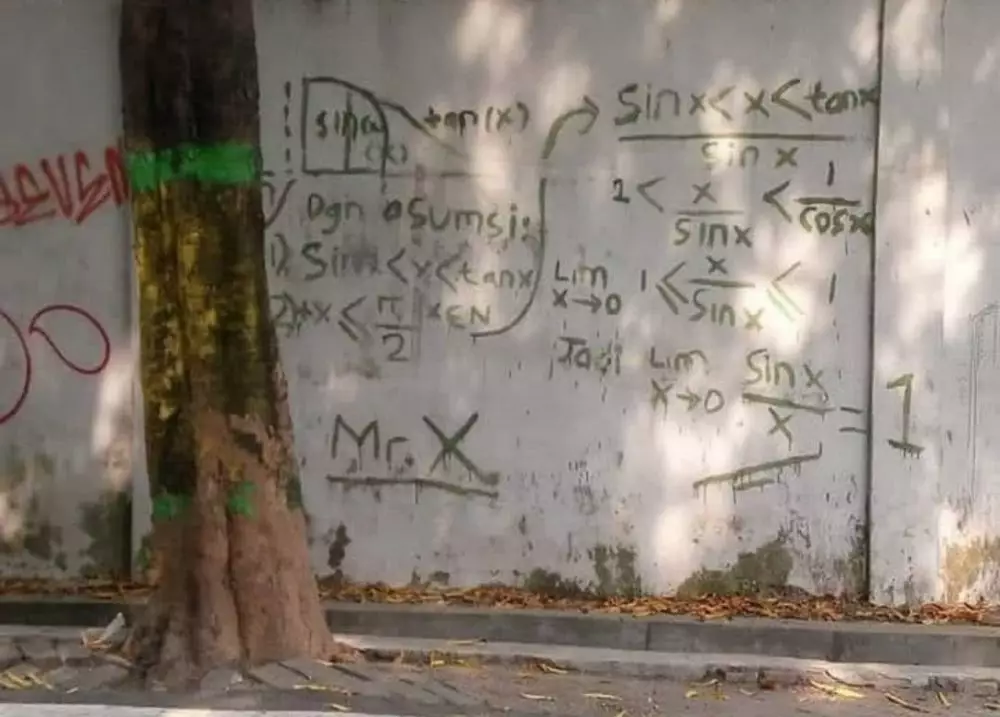 SEVEN
sin(x) tan(x)
Dgn asumsi:
1) Sinx < x < tanx
2) *x ≤ π/2 x∈N
Mr. X
Sinx < x < tanx
sin x
1 < x/sinx < 1/cosx
Lim x→0 1 ≤ x/Sinx ≤ 1
Jadi Lim x→0 Sinx/x = 1